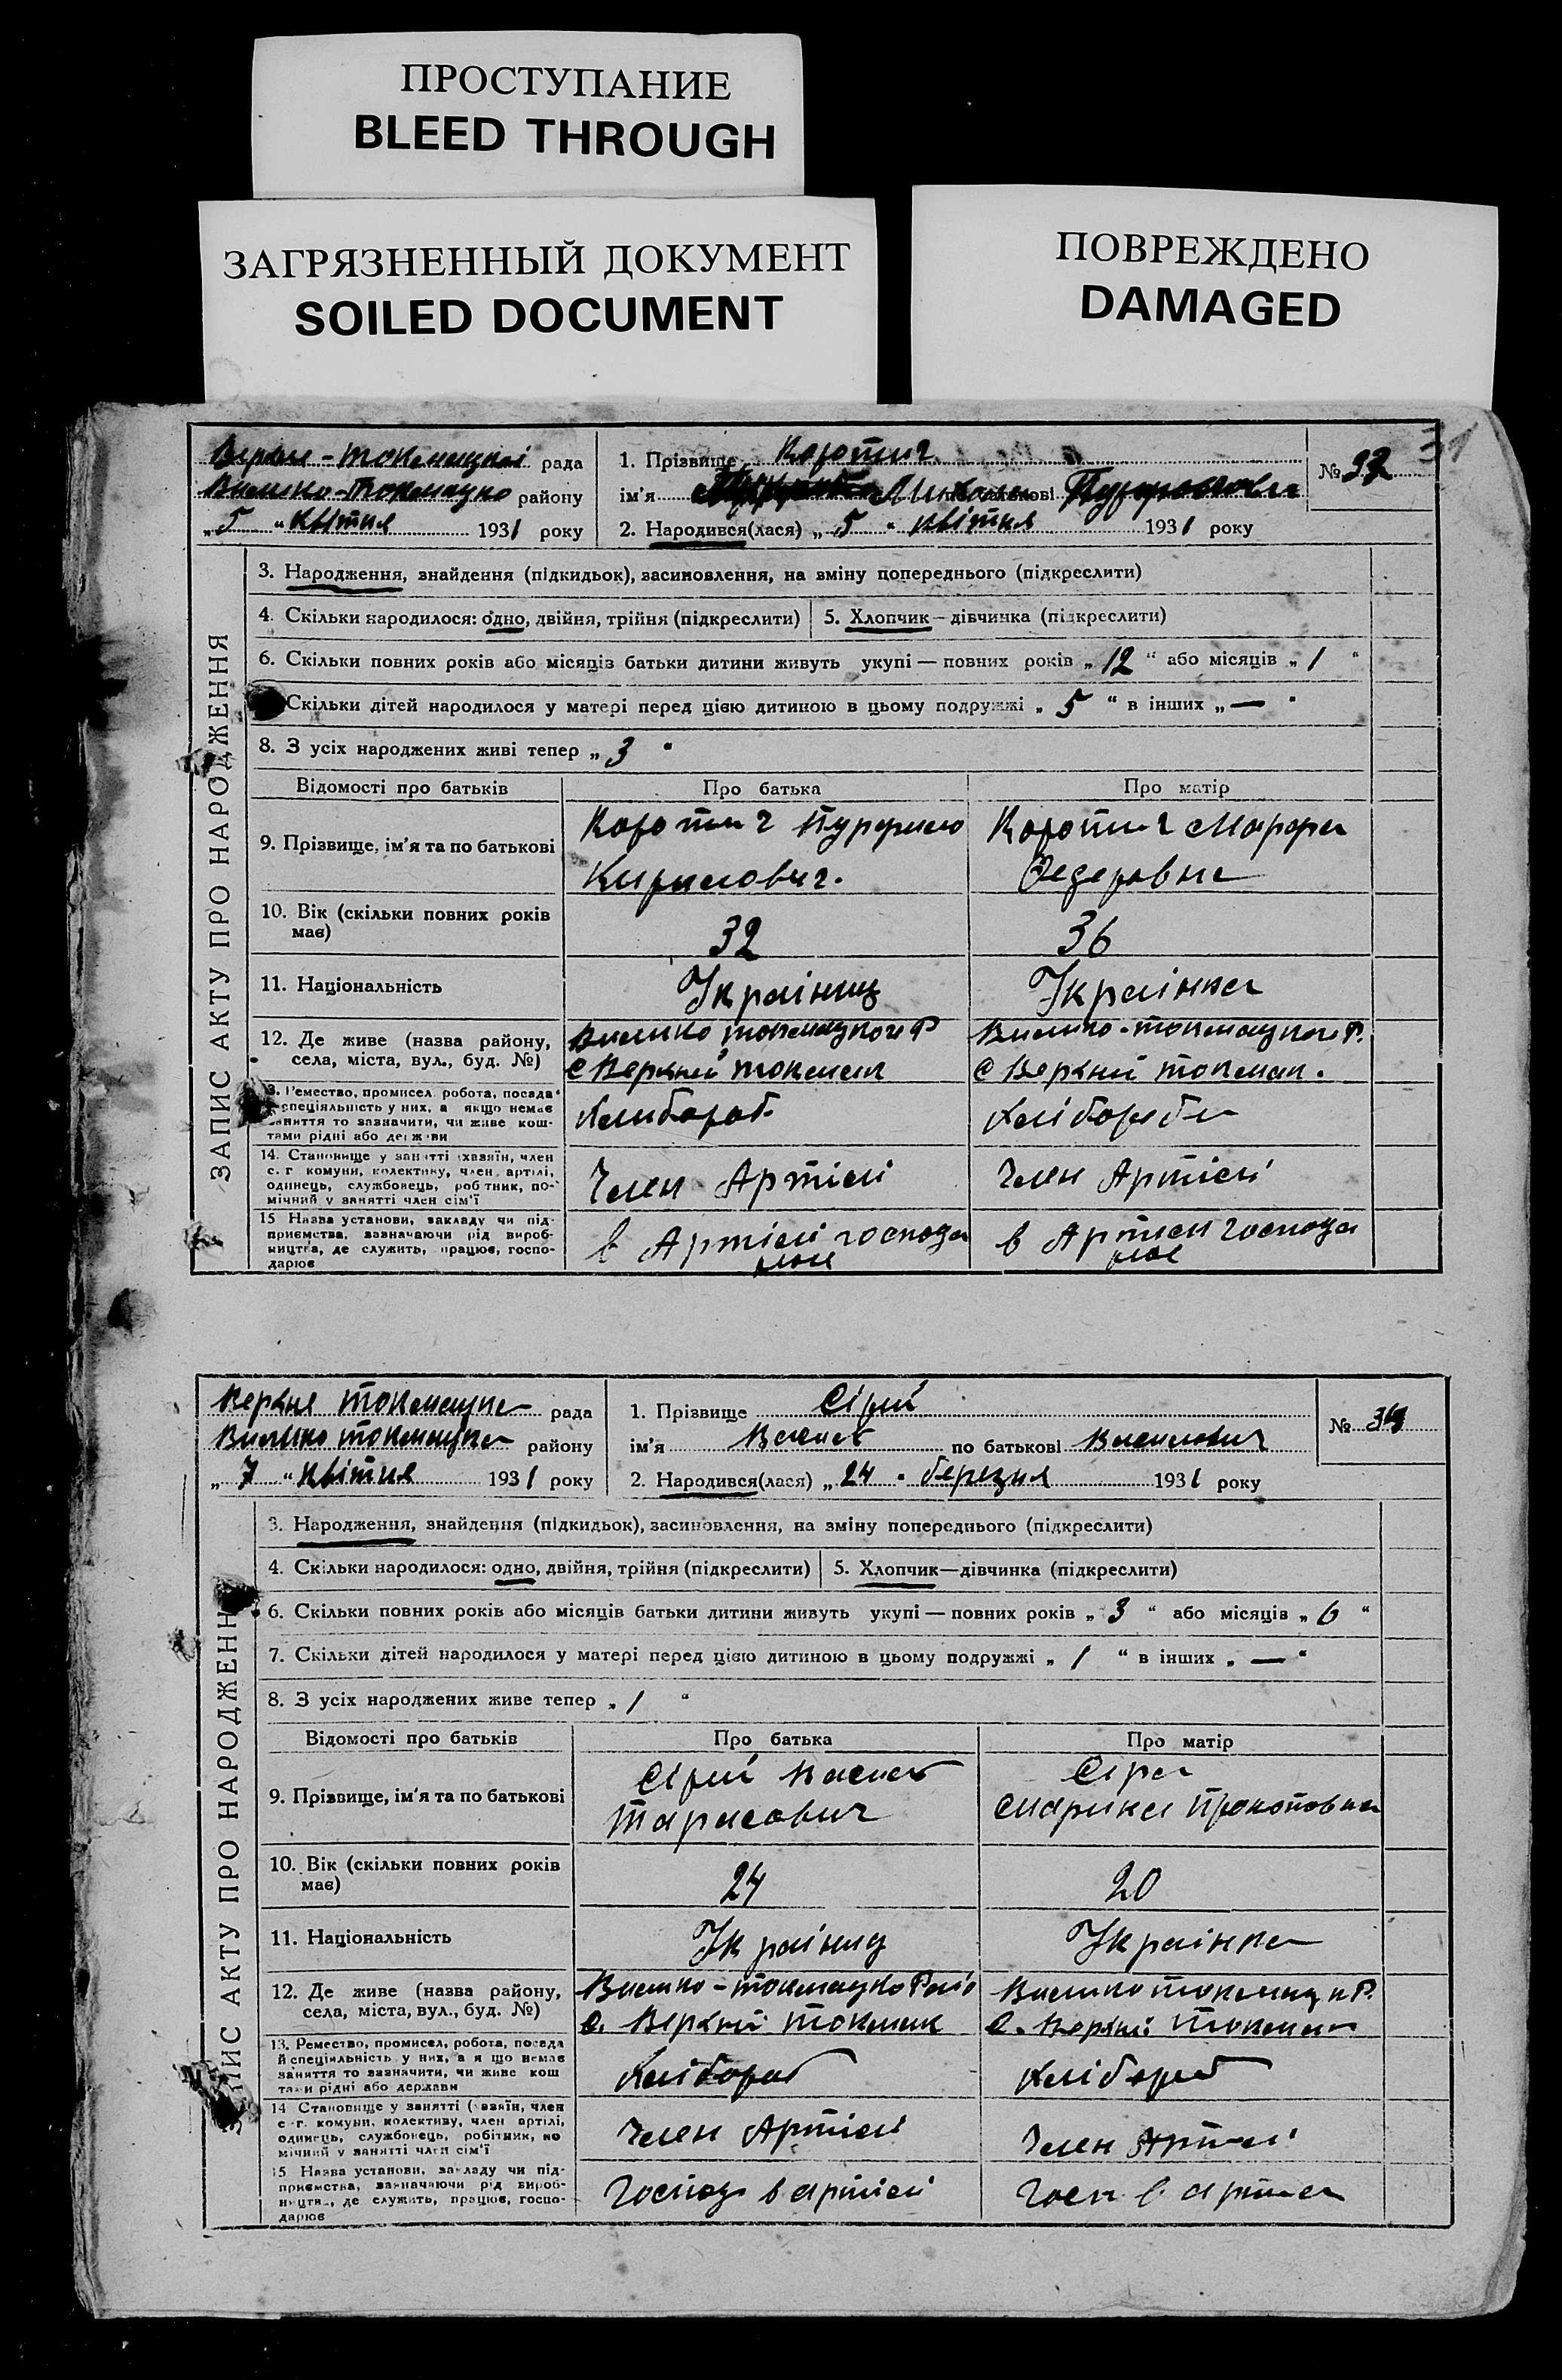 ПРОСТУПАНИЕ
BLEED THROUGH
ЗАГРЯЗНЕННЫЙ ДОКУМЕНТ
SOILED DOCUMENT
ПОВРЕЖДЕНО
DAMAGED
31
рада
району
„5“ квітня 1931 року
1. Прізвище Коротич
ім'я Михаил по батькові
2. Народився(лася) „5“ квітня 1931 року
№
ЗАПИС АКТУ ПРО НАРОДЖЕННЯ
3. Народження, знайдення (підкидьок), засиновлення, на зміну попереднього (підкреслити)
4. Скільки народилося: одно, двійня, трійня (підкреслити)
5. Хлопчик—дівчинка (підкреслити)
6. Скільки повних років або місяців батьки дитини живуть укупі — повних років „12“ або місяців „1“
Скільки дітей народилося у матері перед цією дитиною в цьому подружжі „5“ в інших „—“
8. З усіх народжених живі тепер „3“
Відомості про батьків
Про батька
Про матір
9. Прізвище, ім'я та по батькові
Коротич
Кирилович.
Коротич Марфа
Федеровна
10. Вік (скільки повних років
має)
32
36
11. Національність
Україниц
Українка
12. Де живе (назва району,
села, міста, вул., буд. №)
с Верхній токмак
с Верхний токмак.
Ремество, промисел, робота, посада
спеціяльність у них, а якщо немає
заняття то зазначити, чи живе кош-
тами рідні або держави
Хлибороб
Хлібороб
14. Становище у занятті (хазяїн, член
с. г. комуни, колективу, член артілі,
одинець, службовець, робітник, по-
мічний у занятті член сім'ї
Член Артілі
Член Артілі
15 Назва установи, закладу чи під-
приємства, зазначаючи рід вироб-
ництва, де служить, працює, госпо-
дарює
в Артілі господа
рює
в Артіли господа
рює
Верхне токмацка рада
району
„7“ квітня 1931 року
1. Прізвище Сірий
ім'я по батькові Василович
2. Народився(лася) „24“ березня 1931 року
№ 34
ЗАПИС АКТУ ПРО НАРОДЖЕННЯ
3. Народження, знайдення (підкидьок), засиновлення, на зміну попереднього (підкреслити)
4. Скільки народилося: одно, двійня, трійня (підкреслити)
5. Хлопчик—дівчинка (підкреслити)
6. Скільки повних років або місяців батьки дитини живуть укупі — повних років „3“ або місяців „6“
7. Скільки дітей народилося у матері перед цією дитиною в цьому подружжі „1“ в інших „—“
8. З усіх народжених живе тепер „1“
Відомості про батьків
Про батька
Про матір
9. Прізвище, ім'я та по батькові
Сірий
Тарасович
Сіра
Маріка Прокоповна
10. Вік (скільки повних років
має)
24
20
11. Національність
Україниц
Українка
12. Де живе (назва району,
села, міста, вул., буд. №)
с. Верхній токмак
с. Верхній токмак
13. Ремество, промисел, робота, посада
й спеціяльність у них, а якщо немає
заняття то зазначити, чи живе кош
тами рідні або держави
Хлібороб
Хлібороб
14 Становище у занятті (хазяїн, член
с. г. комуни, колективу, член артілі,
одинець, службовець, робітник, по
мічний у занятті член сім'ї
Член Артілі
Член Артілі
15 Назва установи, закладу чи під-
приємства, зазначаючи рід вироб-
ництва, де служить, працює, госпо-
дарює
Господ в артілі
Госп в артіл